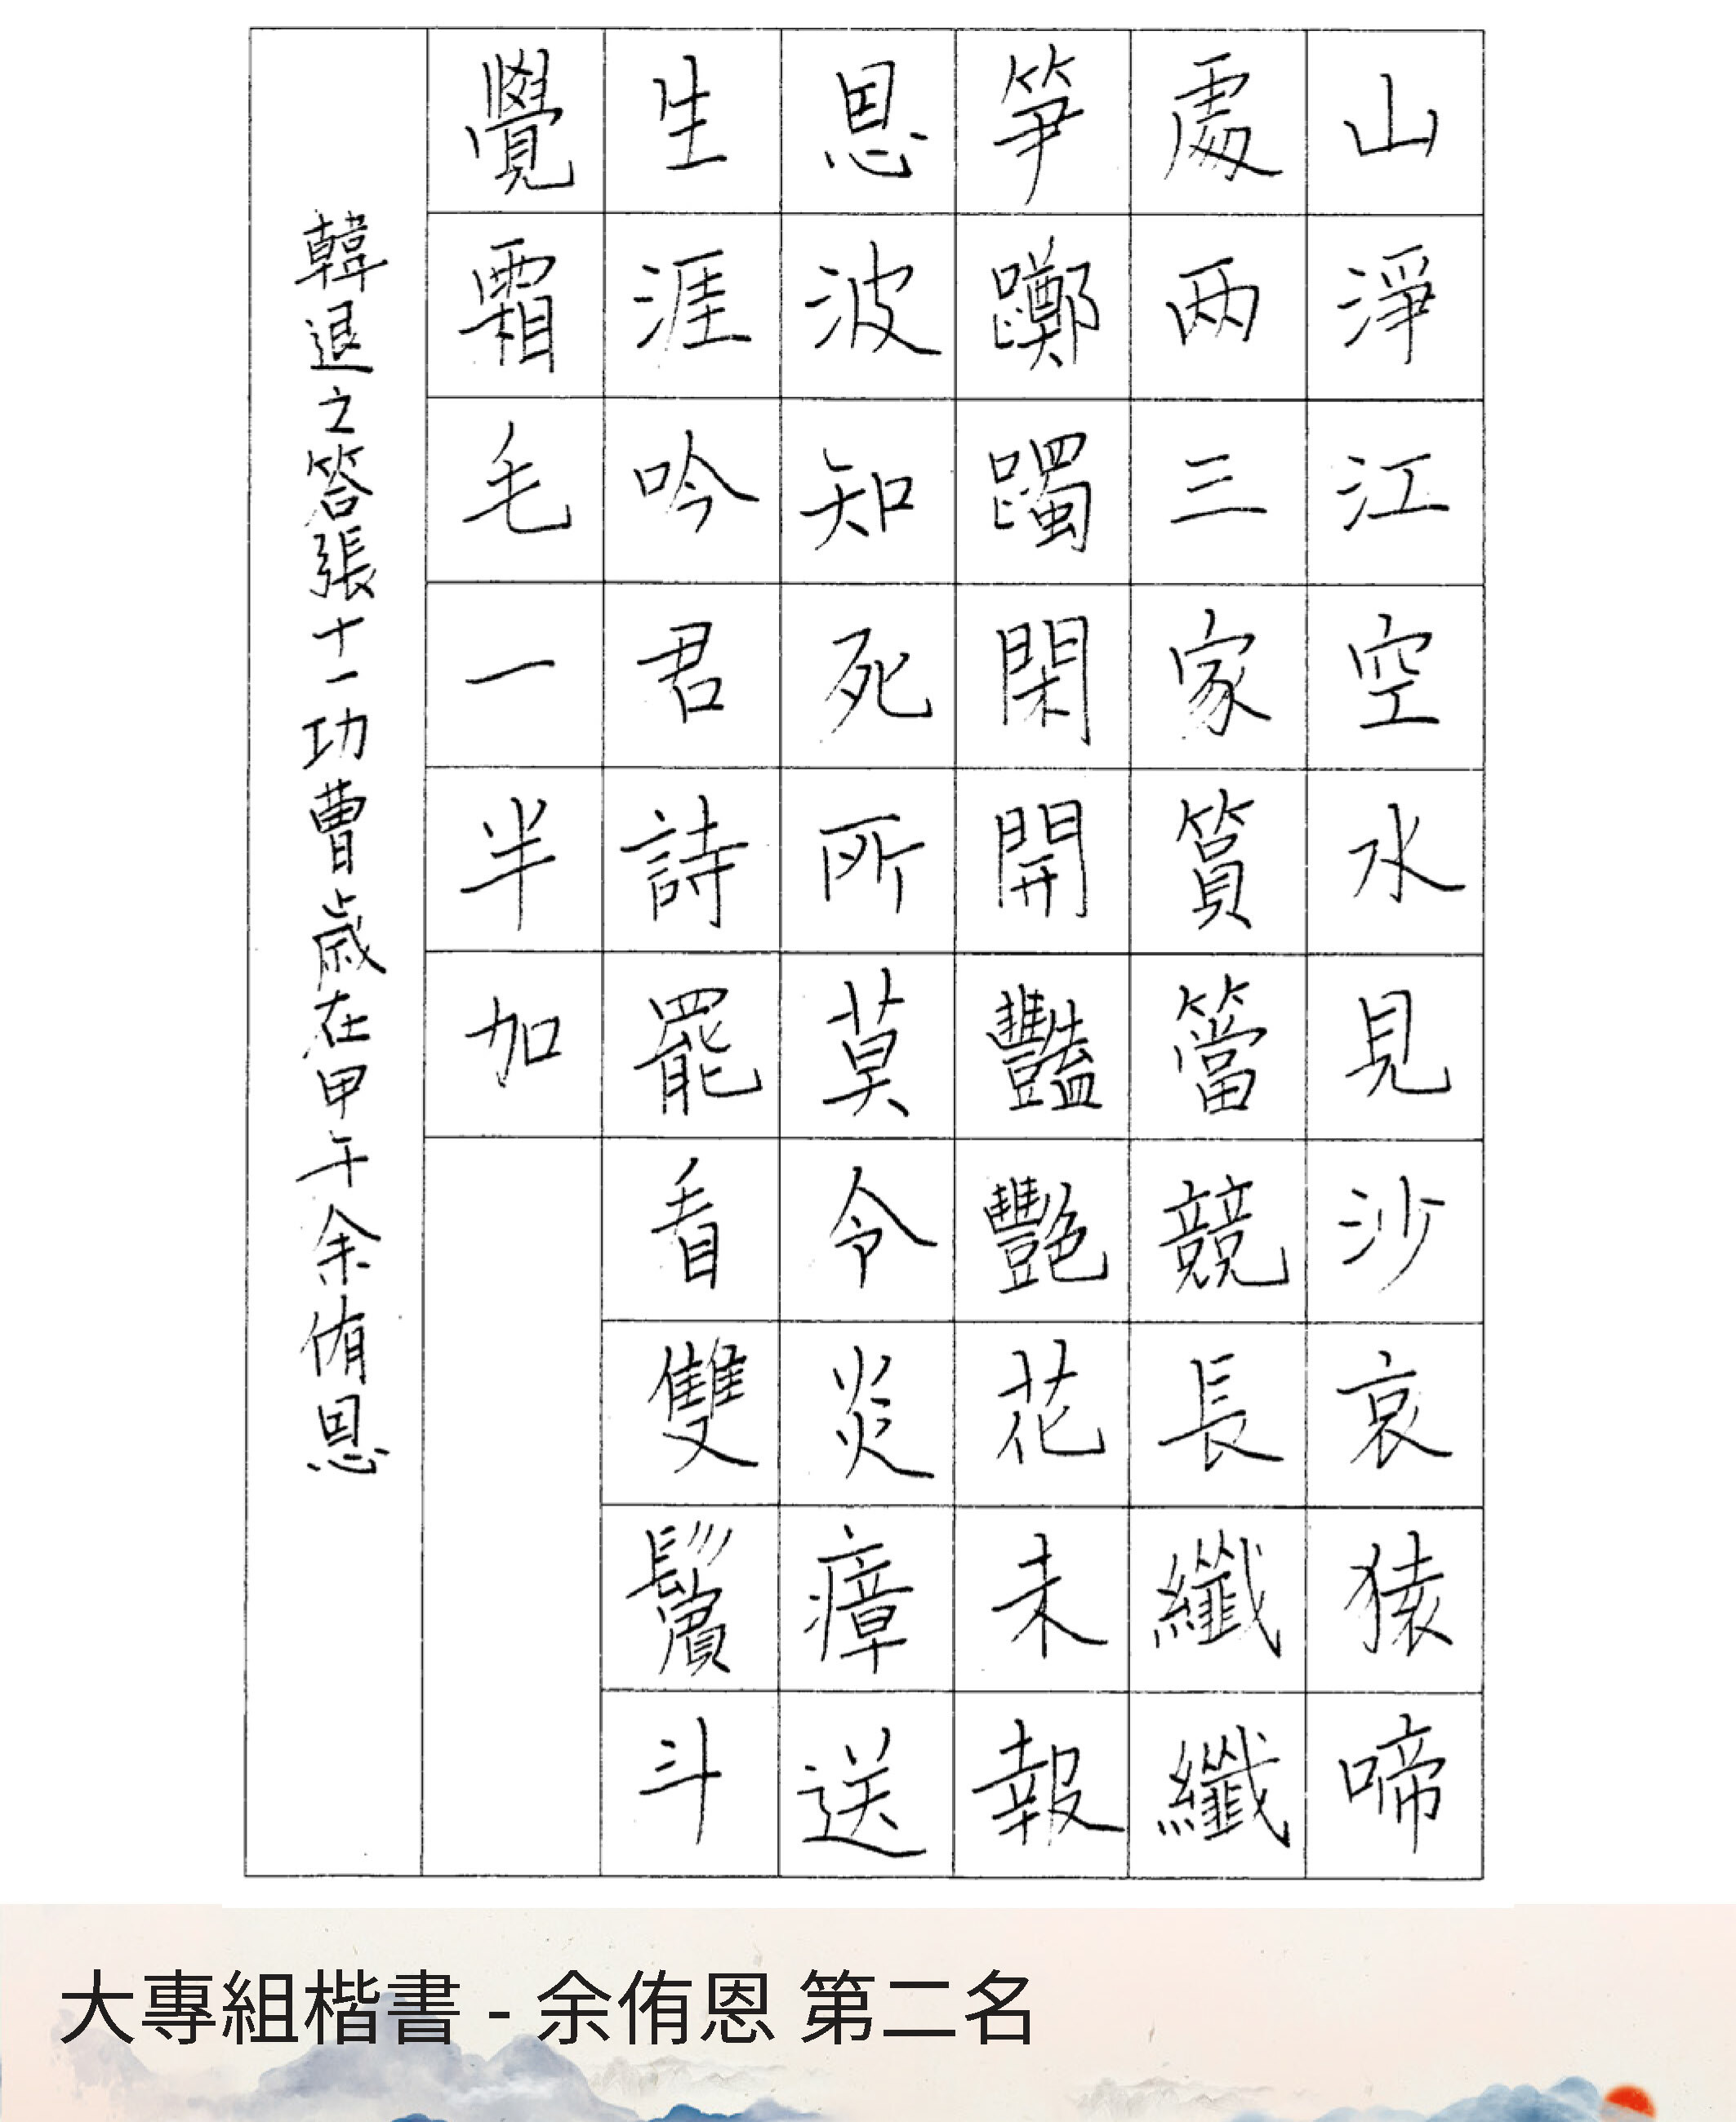 山淨江空水見沙哀猿啼
處兩三家篔簹競長纖纖
笋躑躅閑開豔豔花未報
恩波知死所莫令炎瘴送
生涯吟君詩罷看雙鬢斗
覺霜毛一半加
韓退之答張十一功曹歲在甲午余侑恩
大專組楷書 - 余侑恩 第二名